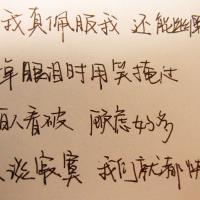 我真佩服我 还能幽
眼泪时用笑掩过
人看破 顾虑好多
谈寂寞 我们就都快